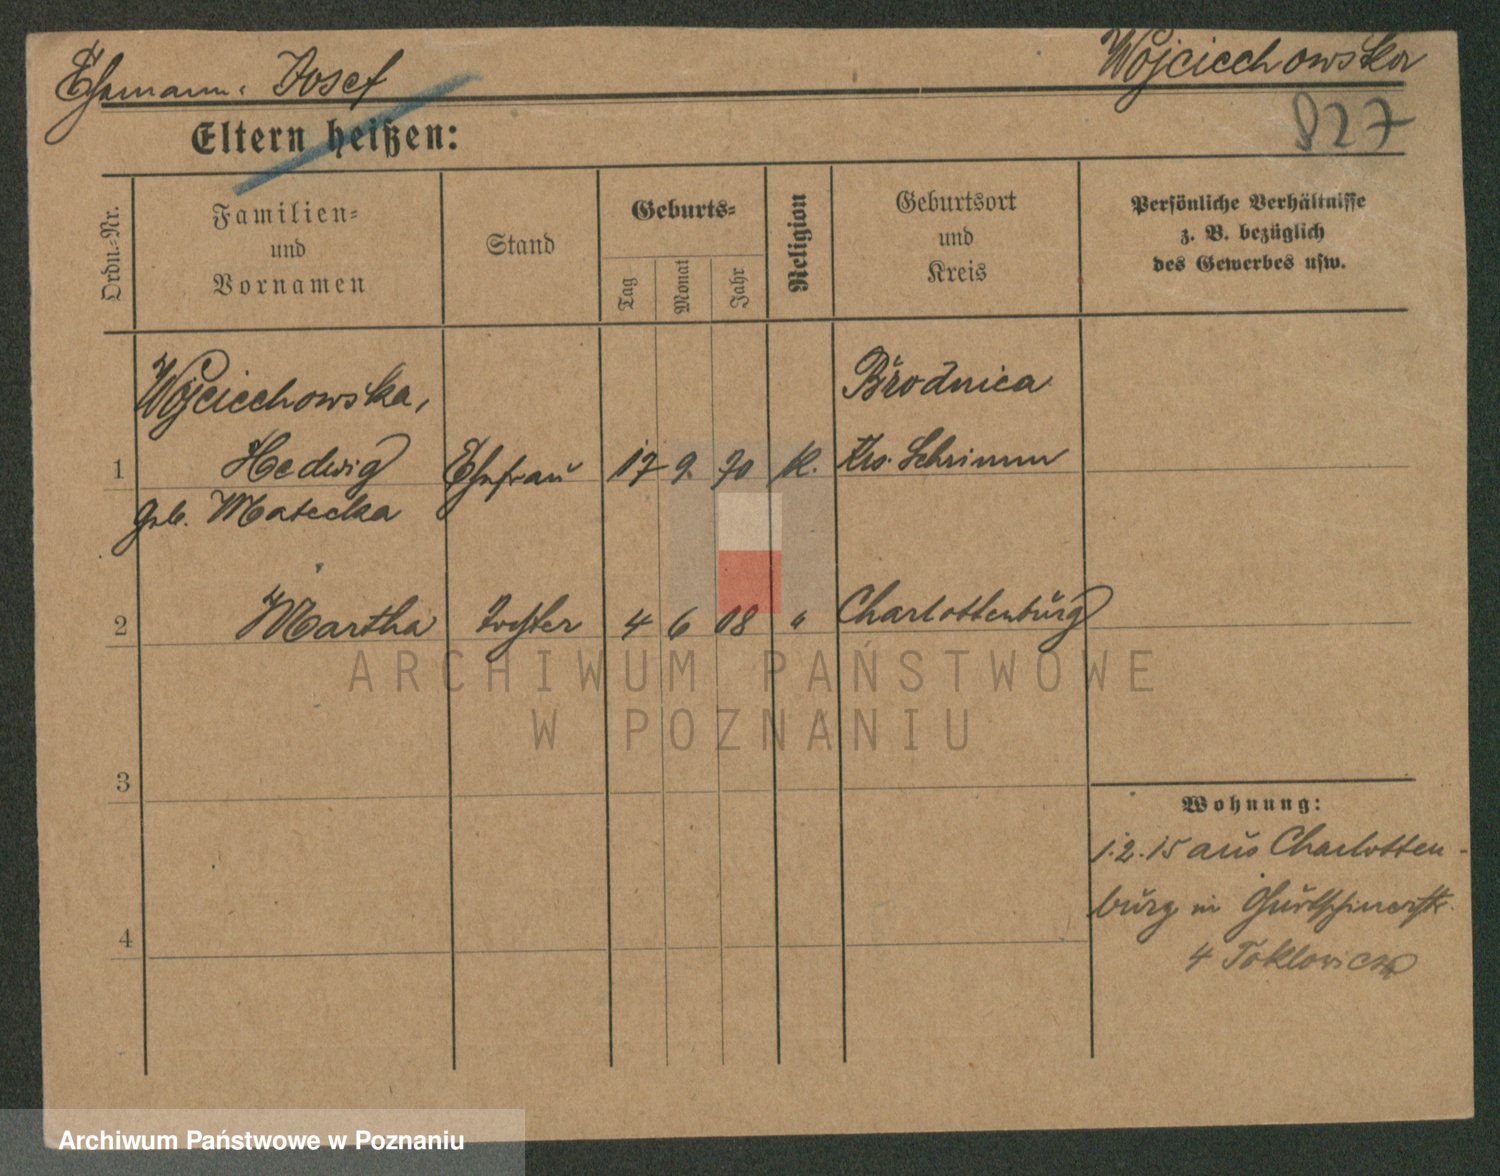 Ehemann: Josef
Wojciechowska
827
Eltern heißen:
Ordn.-Nr.
Familien-
und
Vornamen
Stand
Geburts-
Tag
Monat
Jahr
Religion
Geburtsort
und
Kreis
Persönliche Verhältnisse
z. B. bezüglich
des Gewerbes usw.
Wojciechowska,
Brodnica
1 Hedwig Ehefrau 17 9. 70 K. Krs. Schrimm
geb. Matecka
2 Martha Tochter 4 6 08 " Charlottenburg
ARCHIWUM PAŃSTWOWE
W POZNANIU
3
Wohnung:
1.2.15 aus Charlotten-
burg in Gurtschinerstr.
4
4
Archiwum Państwowe w Poznaniu